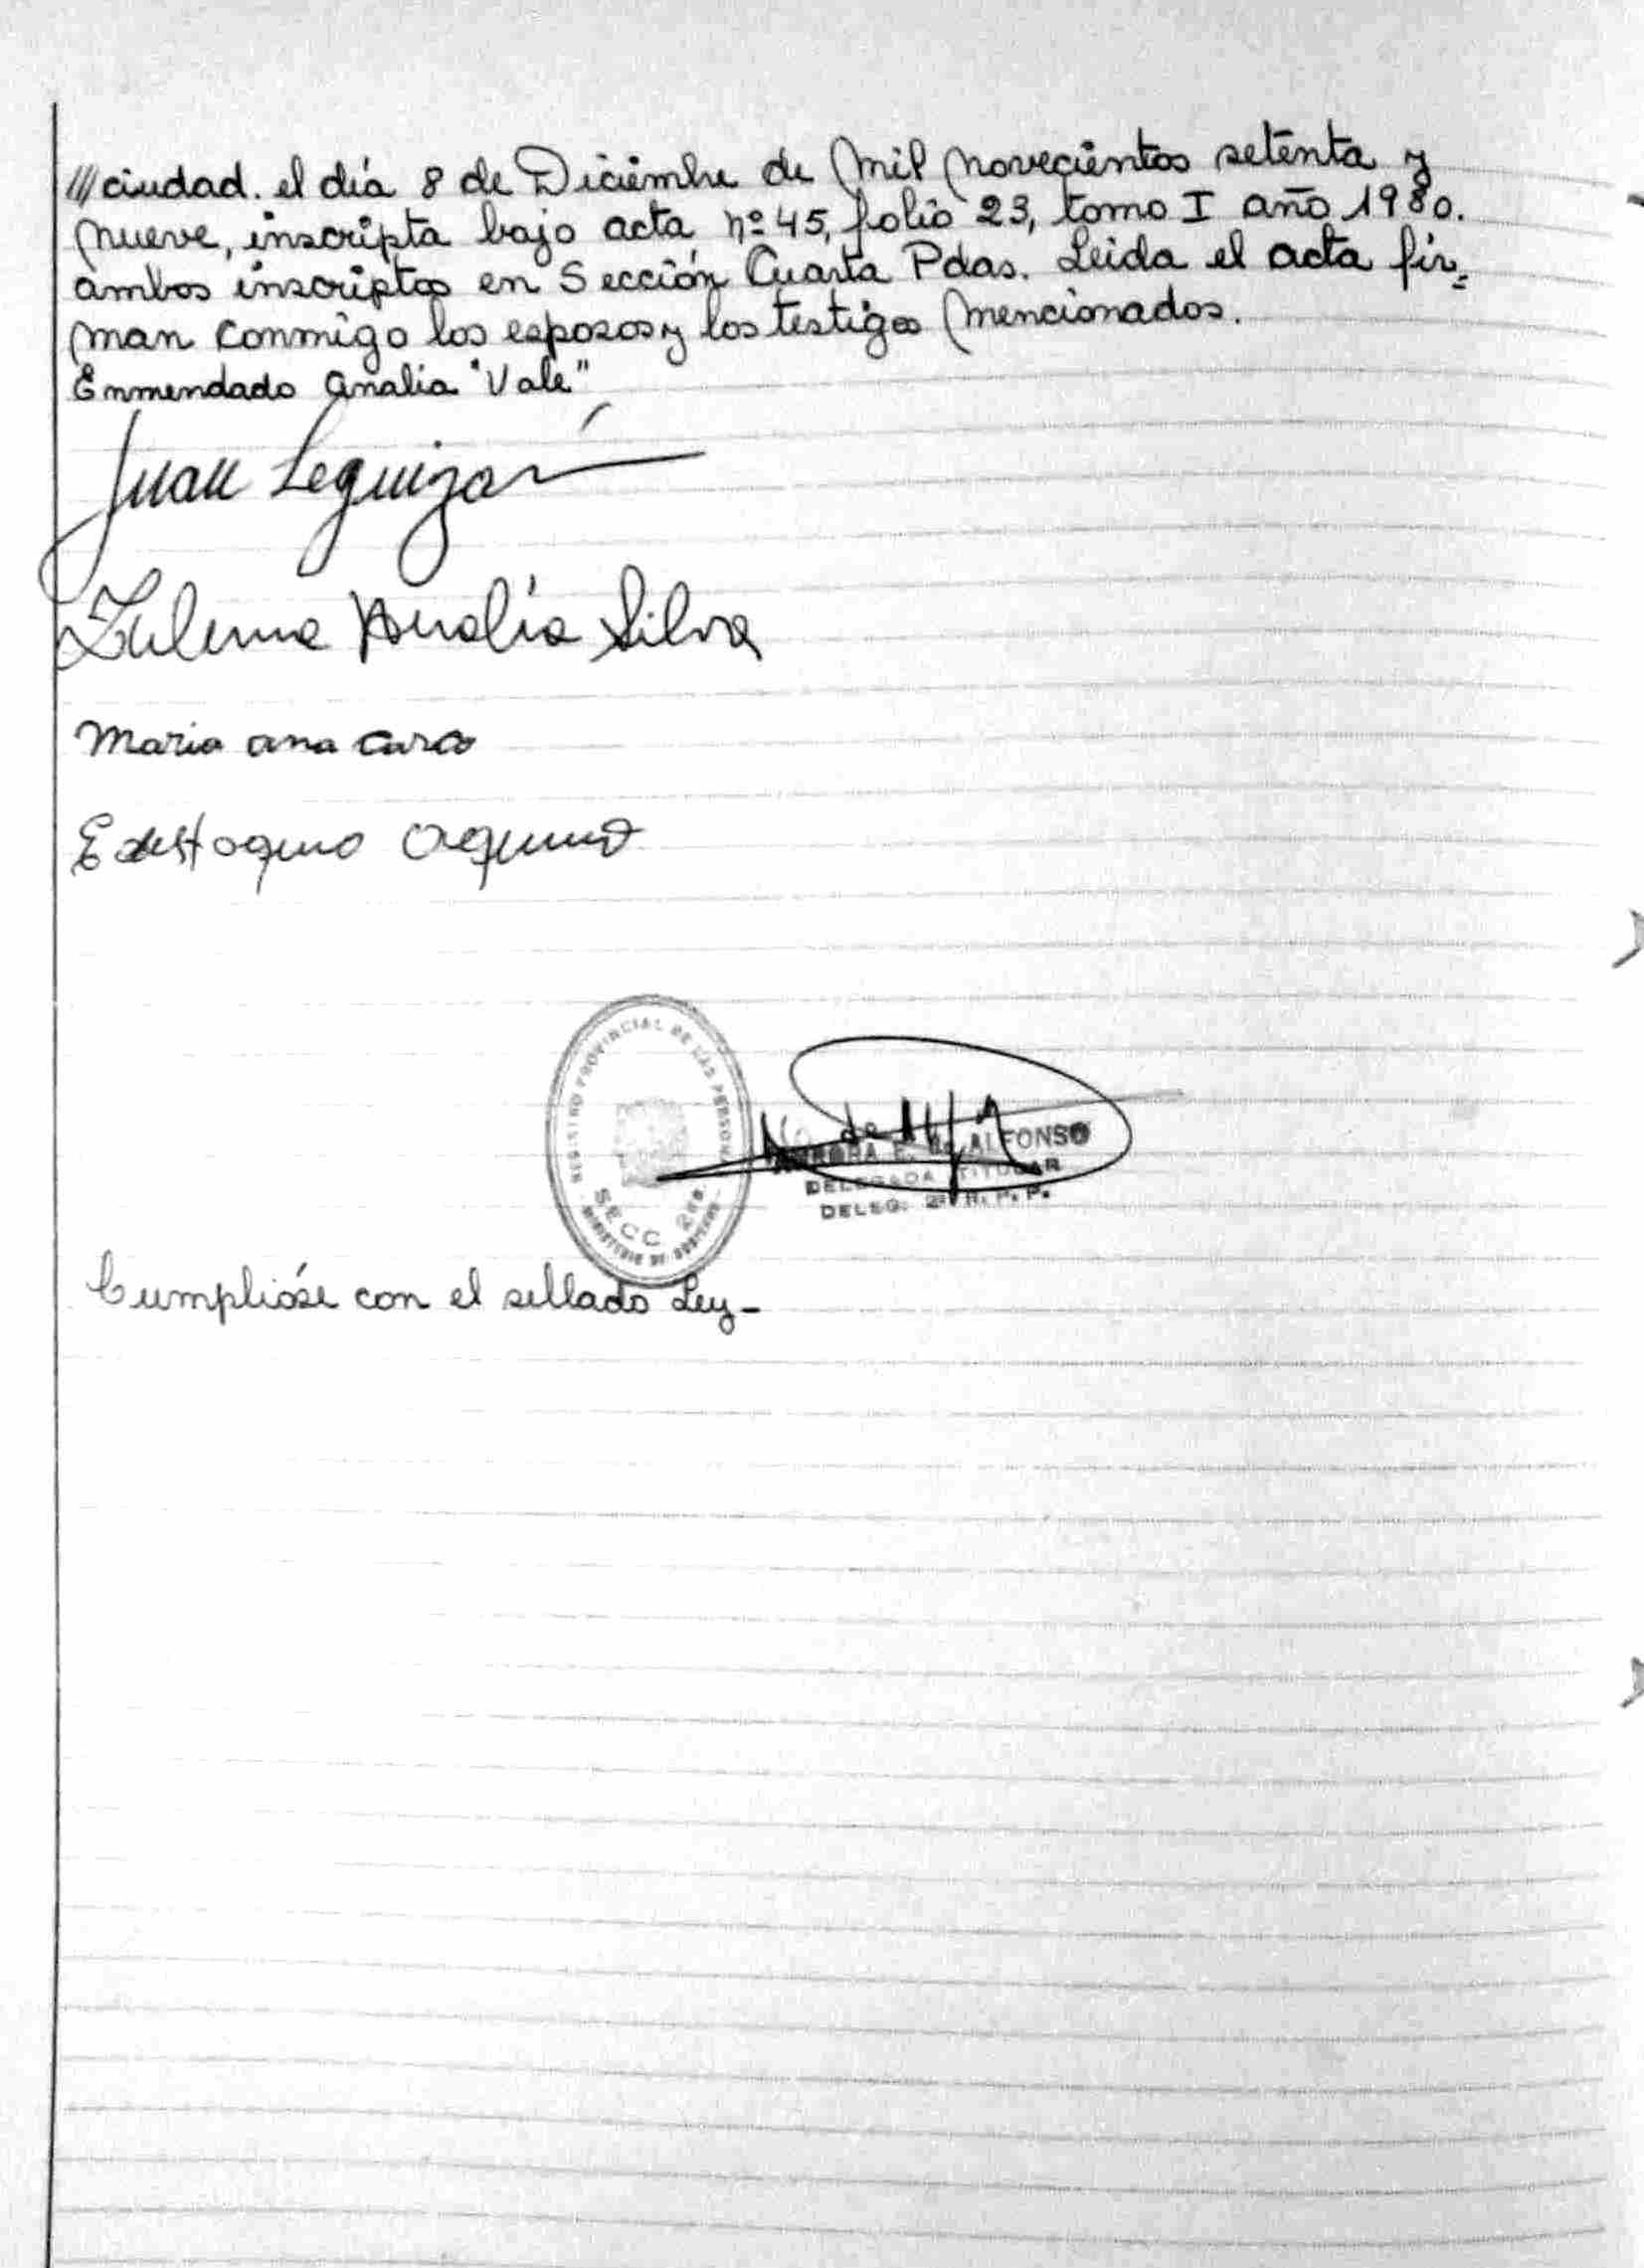 ///ciudad. el día 8 de Diciembre de Mil Novecientos setenta y
Nueve, inscripta bajo acta nº 45, folio 23, tomo I año 1980.
ambos inscriptos en Sección Cuarta Pdas. Leida el acta fir=
man conmigo los esposos y los testigos Mencionados.
Enmendado Analia "Vale"
Juan Leguizamón
Zulema Analía Silva
Maria ana caro
Aquino
REGISTRO PROVINCIAL DE LAS PERSONAS
SECC 2da
MINISTERIO DE GOBIERNO
AURORA E. de ALFONSO
DELEGADA TITULAR
DELEG. 2ª R. P. P.
Cumplióse con el sellado Ley-